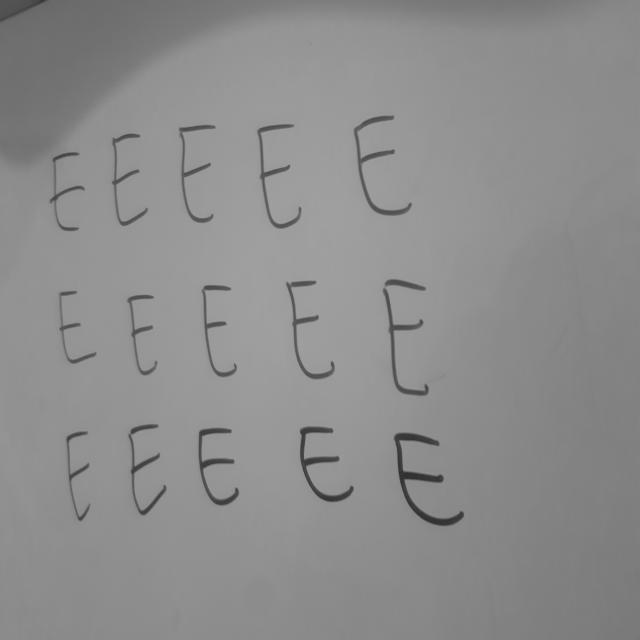 E E E E E
E E E E E
E E E E E